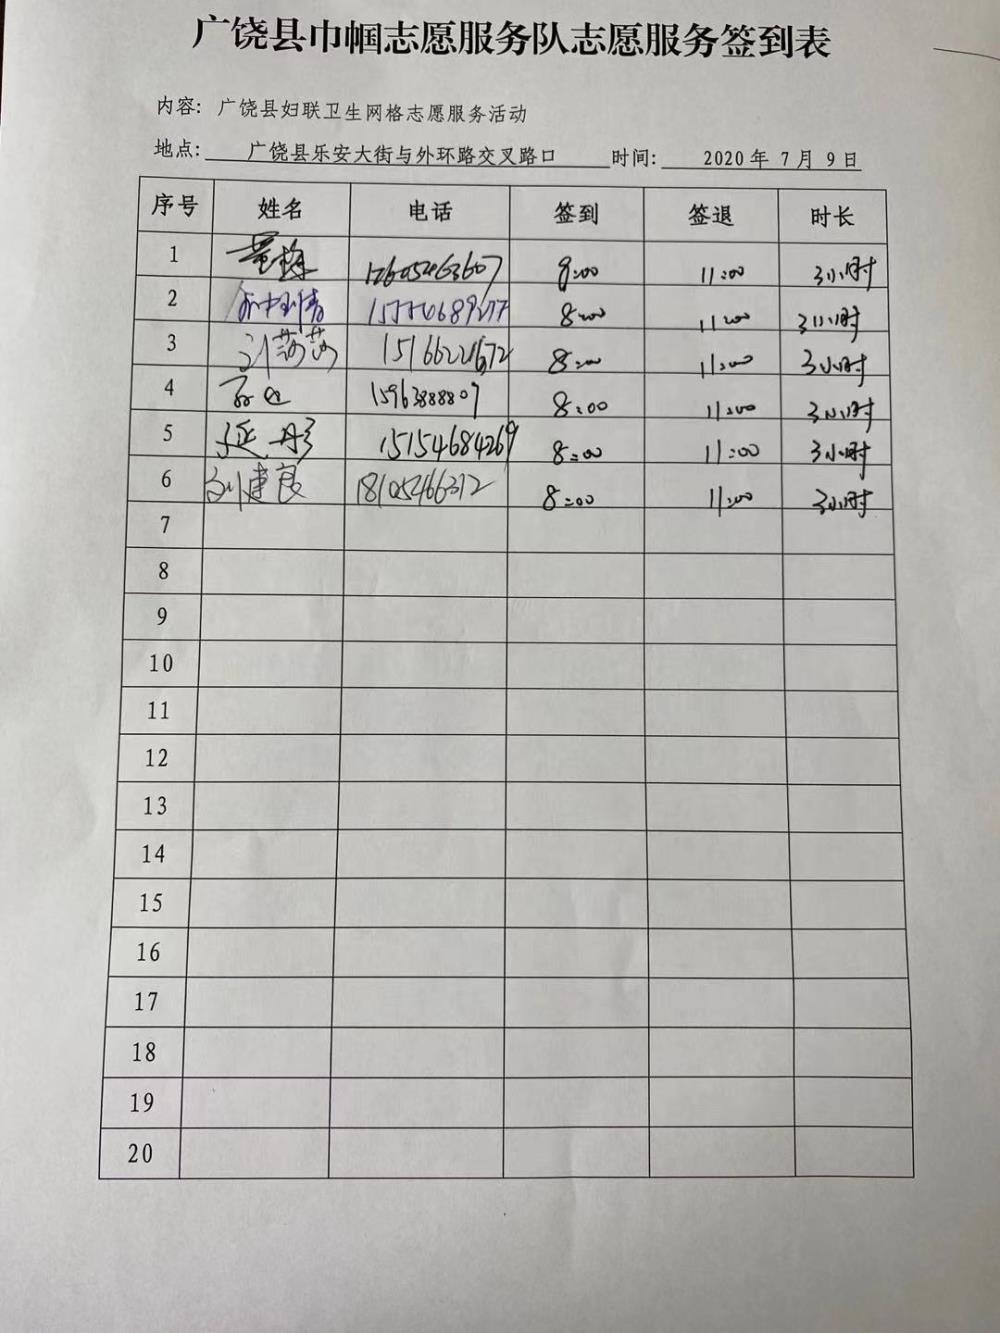 广饶县巾帼志愿服务队志愿服务签到表
内容: 广饶县妇联卫生网格志愿服务活动
地点: 广饶县乐安大街与外环路交叉路口 时间: 2020 年 7 月 9 日
序号 姓名 电话 签到 签退 时长
1 8:00 11:00 3小时
2 8:00 11:00 3小时
3 刘莎莎 8:00 11:00 3小时
4 15963888807 8:00 11:00 3小时
5 延丹彤 15154684269 8:00 11:00 3小时
6 刘建良 18105466312 8:00 11:00 3小时
7
8
9
10
11
12
13
14
15
16
17
18
19
20